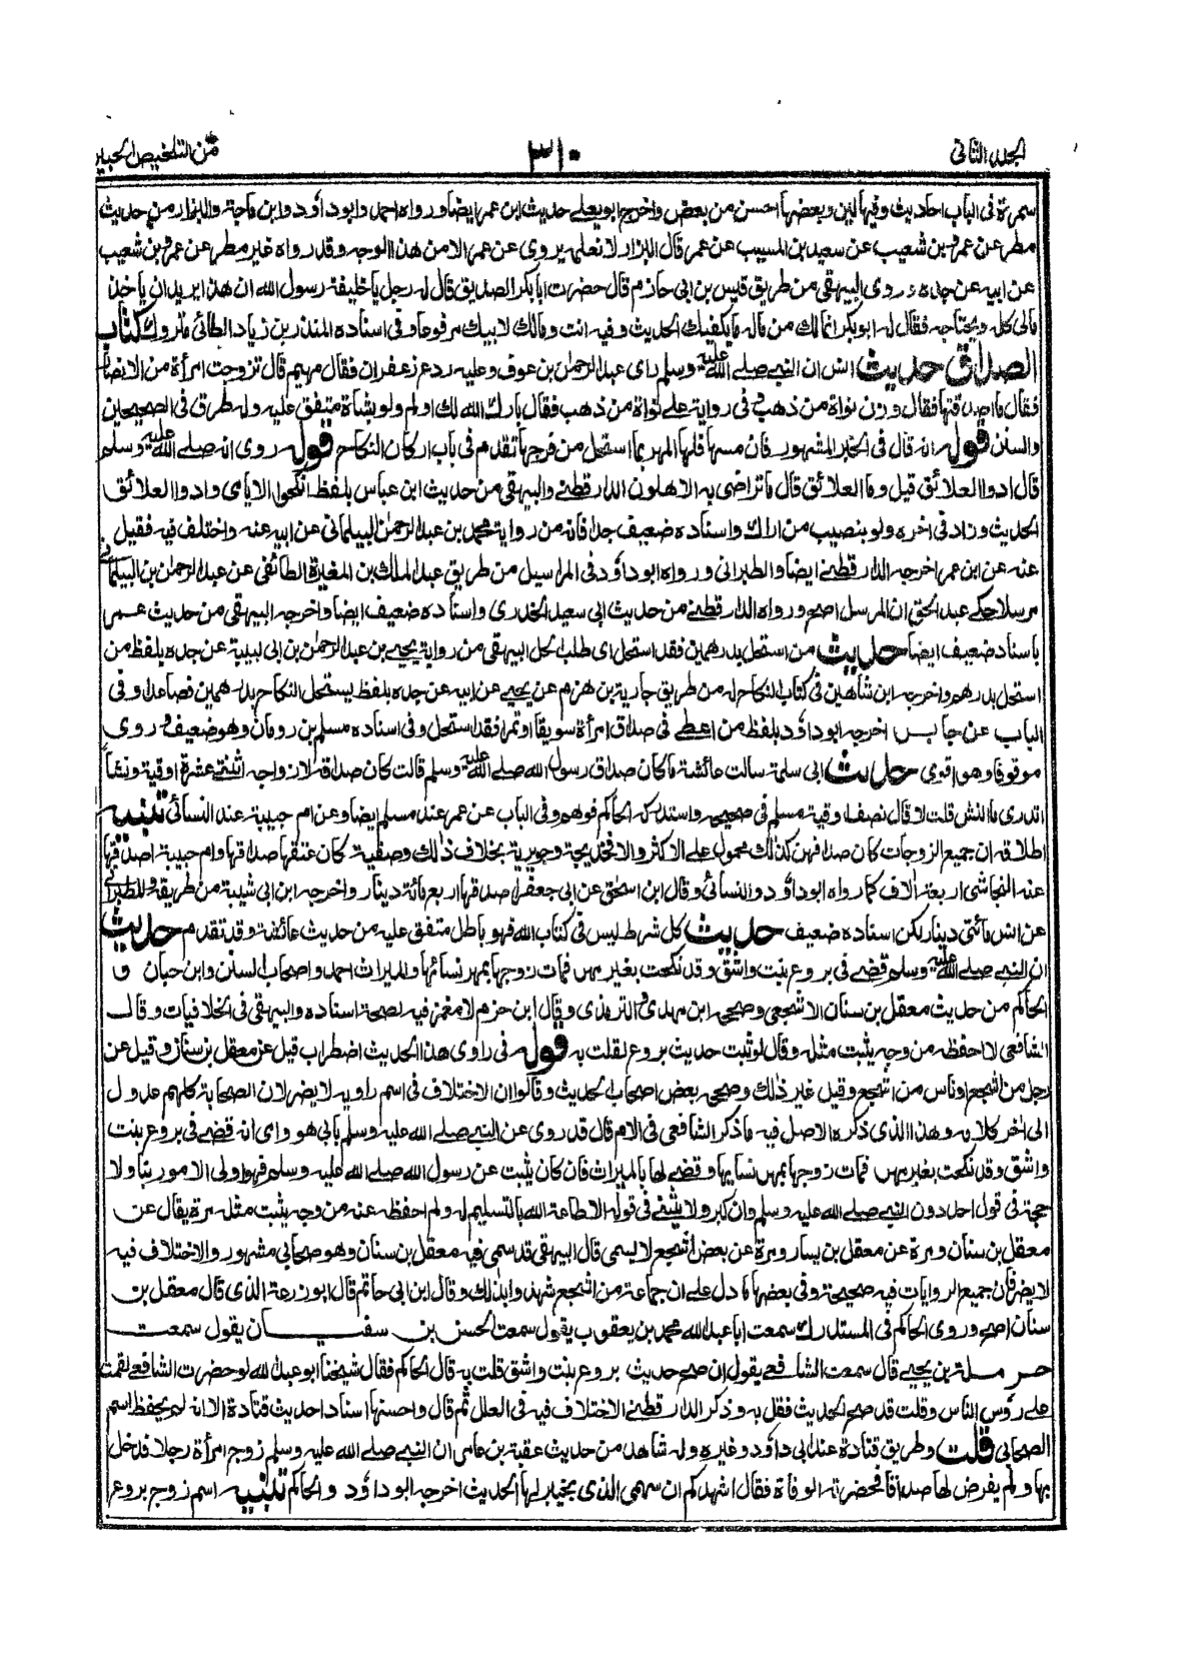 الجلد الثانى ٣١٠ من التلخيص الحبير
سمرة فى الباب احاديث وفيها لين وبعضها احسن من بعض واخرج ابو يعلے حديث ابن عمر ايضا ورواه احمد وابو داؤد وابن ماجة والبزار من حديث
مطر عن عمرو بن شعيب عن سعيد بن المسيب عن عمر قال البزار لا نعلمه يروى عن عمر الا من هذا الوجه وقد رواه غير مطر عن عمرو بن شعيب
عن ابيه عن جده وروى البيهقى من طريق قيس بن ابى حازم قال حضرت ابا بكر الصديق قال له رجل يا خليفة رسول الله ان هذا يريد ان ياخذ
مالى كله ويجتاحه فقال له ابو بكر انما لك من ماله ما يكفيك الحديث وفيه انت ومالك لابيك مرفوعا وفى اسناده المنذر بن زياد الطائى متروك كتاب
الصداق حديث انس ان النبے صلے الله عليه وسلم راى عبد الرحمن بن عوف وعليه ردع زعفران فقال مهيم قال تزوجت امرأة من الانصار
فقال ما اصدقتها فقال وزن نواة من ذهب وفى رواية علے نواة من ذهب فقال بارك الله لك اولم ولو بشاة متفق عليه وله طرق فى الصحيحين
والسنن قوله انه قال فى الخبر المشهور فان مسها فلها المهر بما استحل من فرجها تقدم فى باب اركان النكاح قوله روى انه صلے الله عليه وسلم
قال ادوا العلائق قيل وما العلائق قال ما تراضى به الاهلون الدارقطنے والبيهقى من حديث ابن عباس بلفظ انكحوا الايامى وادوا العلائق
الحديث وزاد فى اخره ولو بنصيب من اراك واسناده ضعيف جدا فانه من رواية محمد بن عبد الرحمن البيلمانى عن ابيه عنه واختلف فيه فقيل
عنه عن ابن عمر اخرجه الدارقطنے ايضا والطبرانى ورواه ابو داؤد فى المراسيل من طريق عبد الملك بن المغيرة الطائفى عن عبد الرحمن بن البيلمانے
مرسلا حكے عبد الحق ان المرسل اصح ورواه الدارقطنے من حديث ابى سعيد الخدرى واسناده ضعيف ايضا واخرجه البيهقى من حديث عمر
باسناد ضعيف ايضا حديث من استحل بدرهمين فقد استحل اى طلب الحل البيهقى من رواية يحيے بن عبد الرحمن بن ابى لبيبة عن جده بلفظ من
استحل بدرهم واخرجه ابن شاهين فى كتاب النكاح له من طريق جارية بن هرم عن يحيے عن ابيه عن جده بلفظ يستحل النكاح بدرهمين فصاعدا وفى
الباب عن جابر اخرجه ابو داؤد بلفظ من اعطے فى صداق امرأة سويقا او تمرا فقد استحل وفى اسناده مسلم بن رومان وهو ضعيف وروى
موقوفا وهو اقوى حديث ابى سلمة سالت عائشة ما كان صداق رسول الله صلے الله عليه وسلم قالت كان صداقه لازواجه اثنتے عشرة اوقية ونشا
اتدرى ما النش قلت لا قال نصف اوقية مسلم فى صحيحه واستدركه الحاكم فوهم وفى الباب عن عمر عند مسلم ايضا وعن ام حبيبة عند النسائى تنبيه
اطلاقه ان جميع الزوجات كان صداقهن كذلك محمول علے الاكثر والا فخديجة وجويرية بخلاف ذلك وصفية كان عتقها صداقها وام حبيبة اصدقها
عنه النجاشى اربعة الاف كما رواه ابو داؤد والنسائى وقال ابن اسحق عن ابى جعفر اصدقها اربع مائة دينار واخرجه ابن ابى شيبة من طريقه وللطبرانے
عن انس مائتى دينار لكن اسناده ضعيف حديث كل شرط ليس فى كتاب الله فهو باطل متفق عليه من حديث عائشة وقد تقدم حديث
ان النبے صلے الله عليه وسلم قضے فى بروع بنت واشق وقد نكحت بغير مهر فمات زوجها بمهر نسائها والميراث احمد واصحاب السنن وابن حبان و
الحاكم من حديث معقل بن سنان الاشجعى وصححه ابن مهدى والترمذى وقال ابن حزم لا مغمز فيه لصحة اسناده والبيهقى فى الخلافيات وقال
الشافعى لا احفظه من وجه يثبت مثله وقال لو ثبت حديث بروع لقلت به قوله فى راوى هذا الحديث اضطراب قيل عن معقل بن سنان وقيل عن
رجل من اشجع او ناس من اشجع وقيل غير ذلك وصححه بعض اصحاب الحديث وقالوا ان الاختلاف فى اسم راويه لا يضر لان الصحابة كلهم عدول
الى اخر كلامه وهذا الذى ذكره الاصل فيه ما ذكر الشافعى فى الام قال قد روى عن النبے صلے الله عليه وسلم بابى هو وامى انه قضے فى بروع بنت
واشق وقد نكحت بغير مهر فمات زوجها بمهر نسايها وقضے لها بالميراث فان كان يثبت عن رسول الله صلے الله عليه وسلم فهو اولى الامور بنا ولا
حجة فى قول احد دون النبے صلے الله عليه وسلم وان كبر ولا يثنے فى قوله الا طاعة الله بالتسليم له ولم احفظه عنه من وجه يثبت مثله مرة يقال عن
معقل بن سنان ومرة عن معقل بن يسار ومرة عن بعض اشجع لا يسمى قال البيهقى قد سمى فيه معقل بن سنان وهو صحابى مشهور والاختلاف فيه
لا يضر فان جميع الروايات فيه صحيحة وفى بعضها ما دل علے ان جماعة من اشجع شهدوا بذلك وقال ابن ابى حاتم قال ابو زرعة الذى قال معقل بن
سنان اصح وروى الحاكم فى المستدرك سمعت ابا عبد الله محمد بن يعقوب يقول سمعت الحسن بن سفيان يقول سمعت
حرملة بن يحيے قال سمعت الشافعے يقول ان صح حديث بروع بنت واشق قلت به قال الحاكم فقال شيخنا ابو عبد الله لو حضرت الشافعے لقمت
علے رؤس الناس وقلت قد صح الحديث فقل به وذكر الدارقطنے الاختلاف فيه فى العلل ثم قال واحسنها اسنادا حديث قتادة الا انه لم يحفظ اسم
الصحابى قلت وطريق قتادة عند ابى داؤد وغيره وله شاهد من حديث عقبة بن عامر ان النبے صلے الله عليه وسلم زوج امرأة رجلا فدخل
بها ولم يفرض لها صداقا فحضرته الوفاة فقال اشهدكم ان سهمى الذى بخيبر لها الحديث اخرجه ابو داؤد والحاكم تنبيه اسم زوج بروع